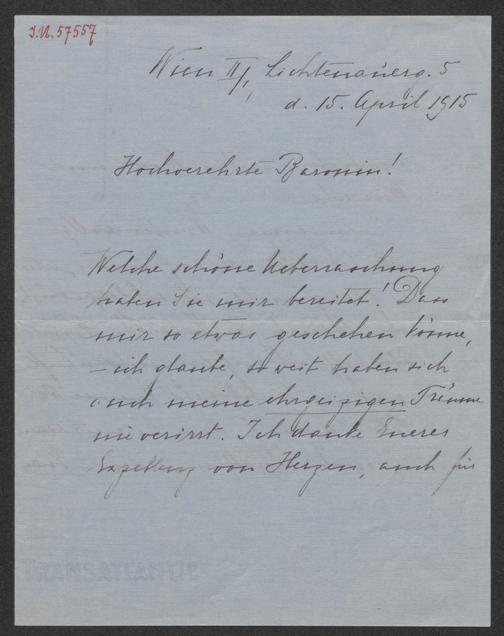 J.N. 57557
Wien II/1, Lichtenauerg. 5
d. 15. April 1915
Hochverehrte Baronin!
Welche schöne Ueberraschung
haben Sie mir bereitet! Dass
mir so etwas geschehen könne,
– ich glaube, so weit haben sich
auch meine ehrgeizigen Träume
nie verirrt. Ich danke Euerer
Exzellenz von Herzen, auch für
TRANSATLANTIC